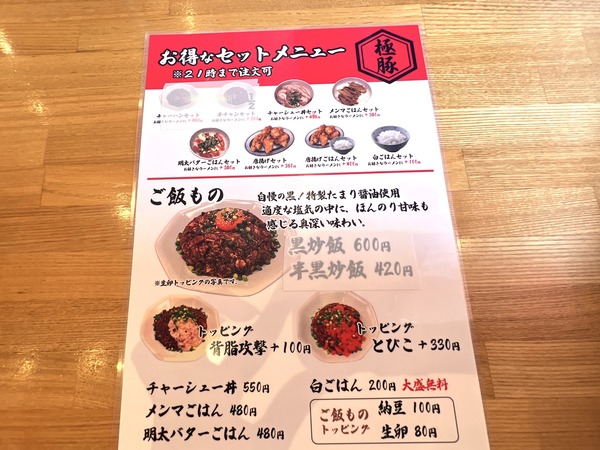 お得なセットメニュー
※21時まで注文可
極豚
チャーハンセット
半チャンセット
チャーシュー丼セット
お好きなラーメンに
メンマごはんセット
お好きなラーメンに
明太バターごはんセット
お好きなラーメンに
唐揚げセット
お好きなラーメンに
唐揚げごはんセット
お好きなラーメンに
白ごはんセット
お好きなラーメンに
ご飯もの
自慢の黒!特製たまり醤油使用
適度な塩気の中に、ほんのり甘味も
感じる奥深い味わい。
黒炒飯 600円
半黒炒飯 420円
※生卵トッピングの写真です。
トッピング
背脂攻撃+100円
トッピング
とびこ+330円
チャーシュー丼 550円
メンマごはん 480円
明太バターごはん 480円
白ごはん 200円 大盛無料
ご飯もの
トッピング
納豆 100円
生卵 80円